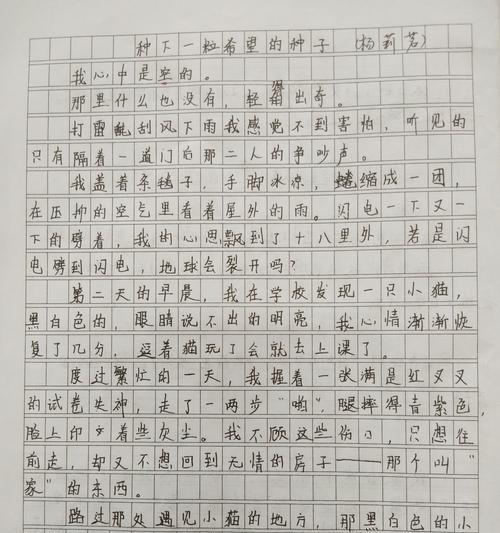 种下一粒希望的种子 (杨莉茗)
我心中是空的。
那里什么也没有，轻得出奇。
打雷刮风下雨我感觉不到害怕，听见的
只有隔着一道门后那二人的争吵声。
我盖着条毯子，手脚冰凉，蜷缩成一团，
在压抑的空气里看着屋外的雨。闪电一下又一
下的劈着，我的心思飘到了十八里外，若是闪
电劈到闪电，地球会裂开吗？
第二天的早晨，我在学校发现一只小猫，
黑白色的，眼睛说不出的明亮，我心情渐渐恢
复了几分，逗着猫玩了会就去上课了。
度过繁忙的一天，我握着一张满是红叉叉
的试卷失神，走了一两步“啪”，腿摔得青紫色，
脸上印着些灰尘。我不顾这些伤口，只想往
前走，却又不想回到无情的房子——那个叫“
家”的东西。
路过那处遇见小猫的地方，那黑白色的小